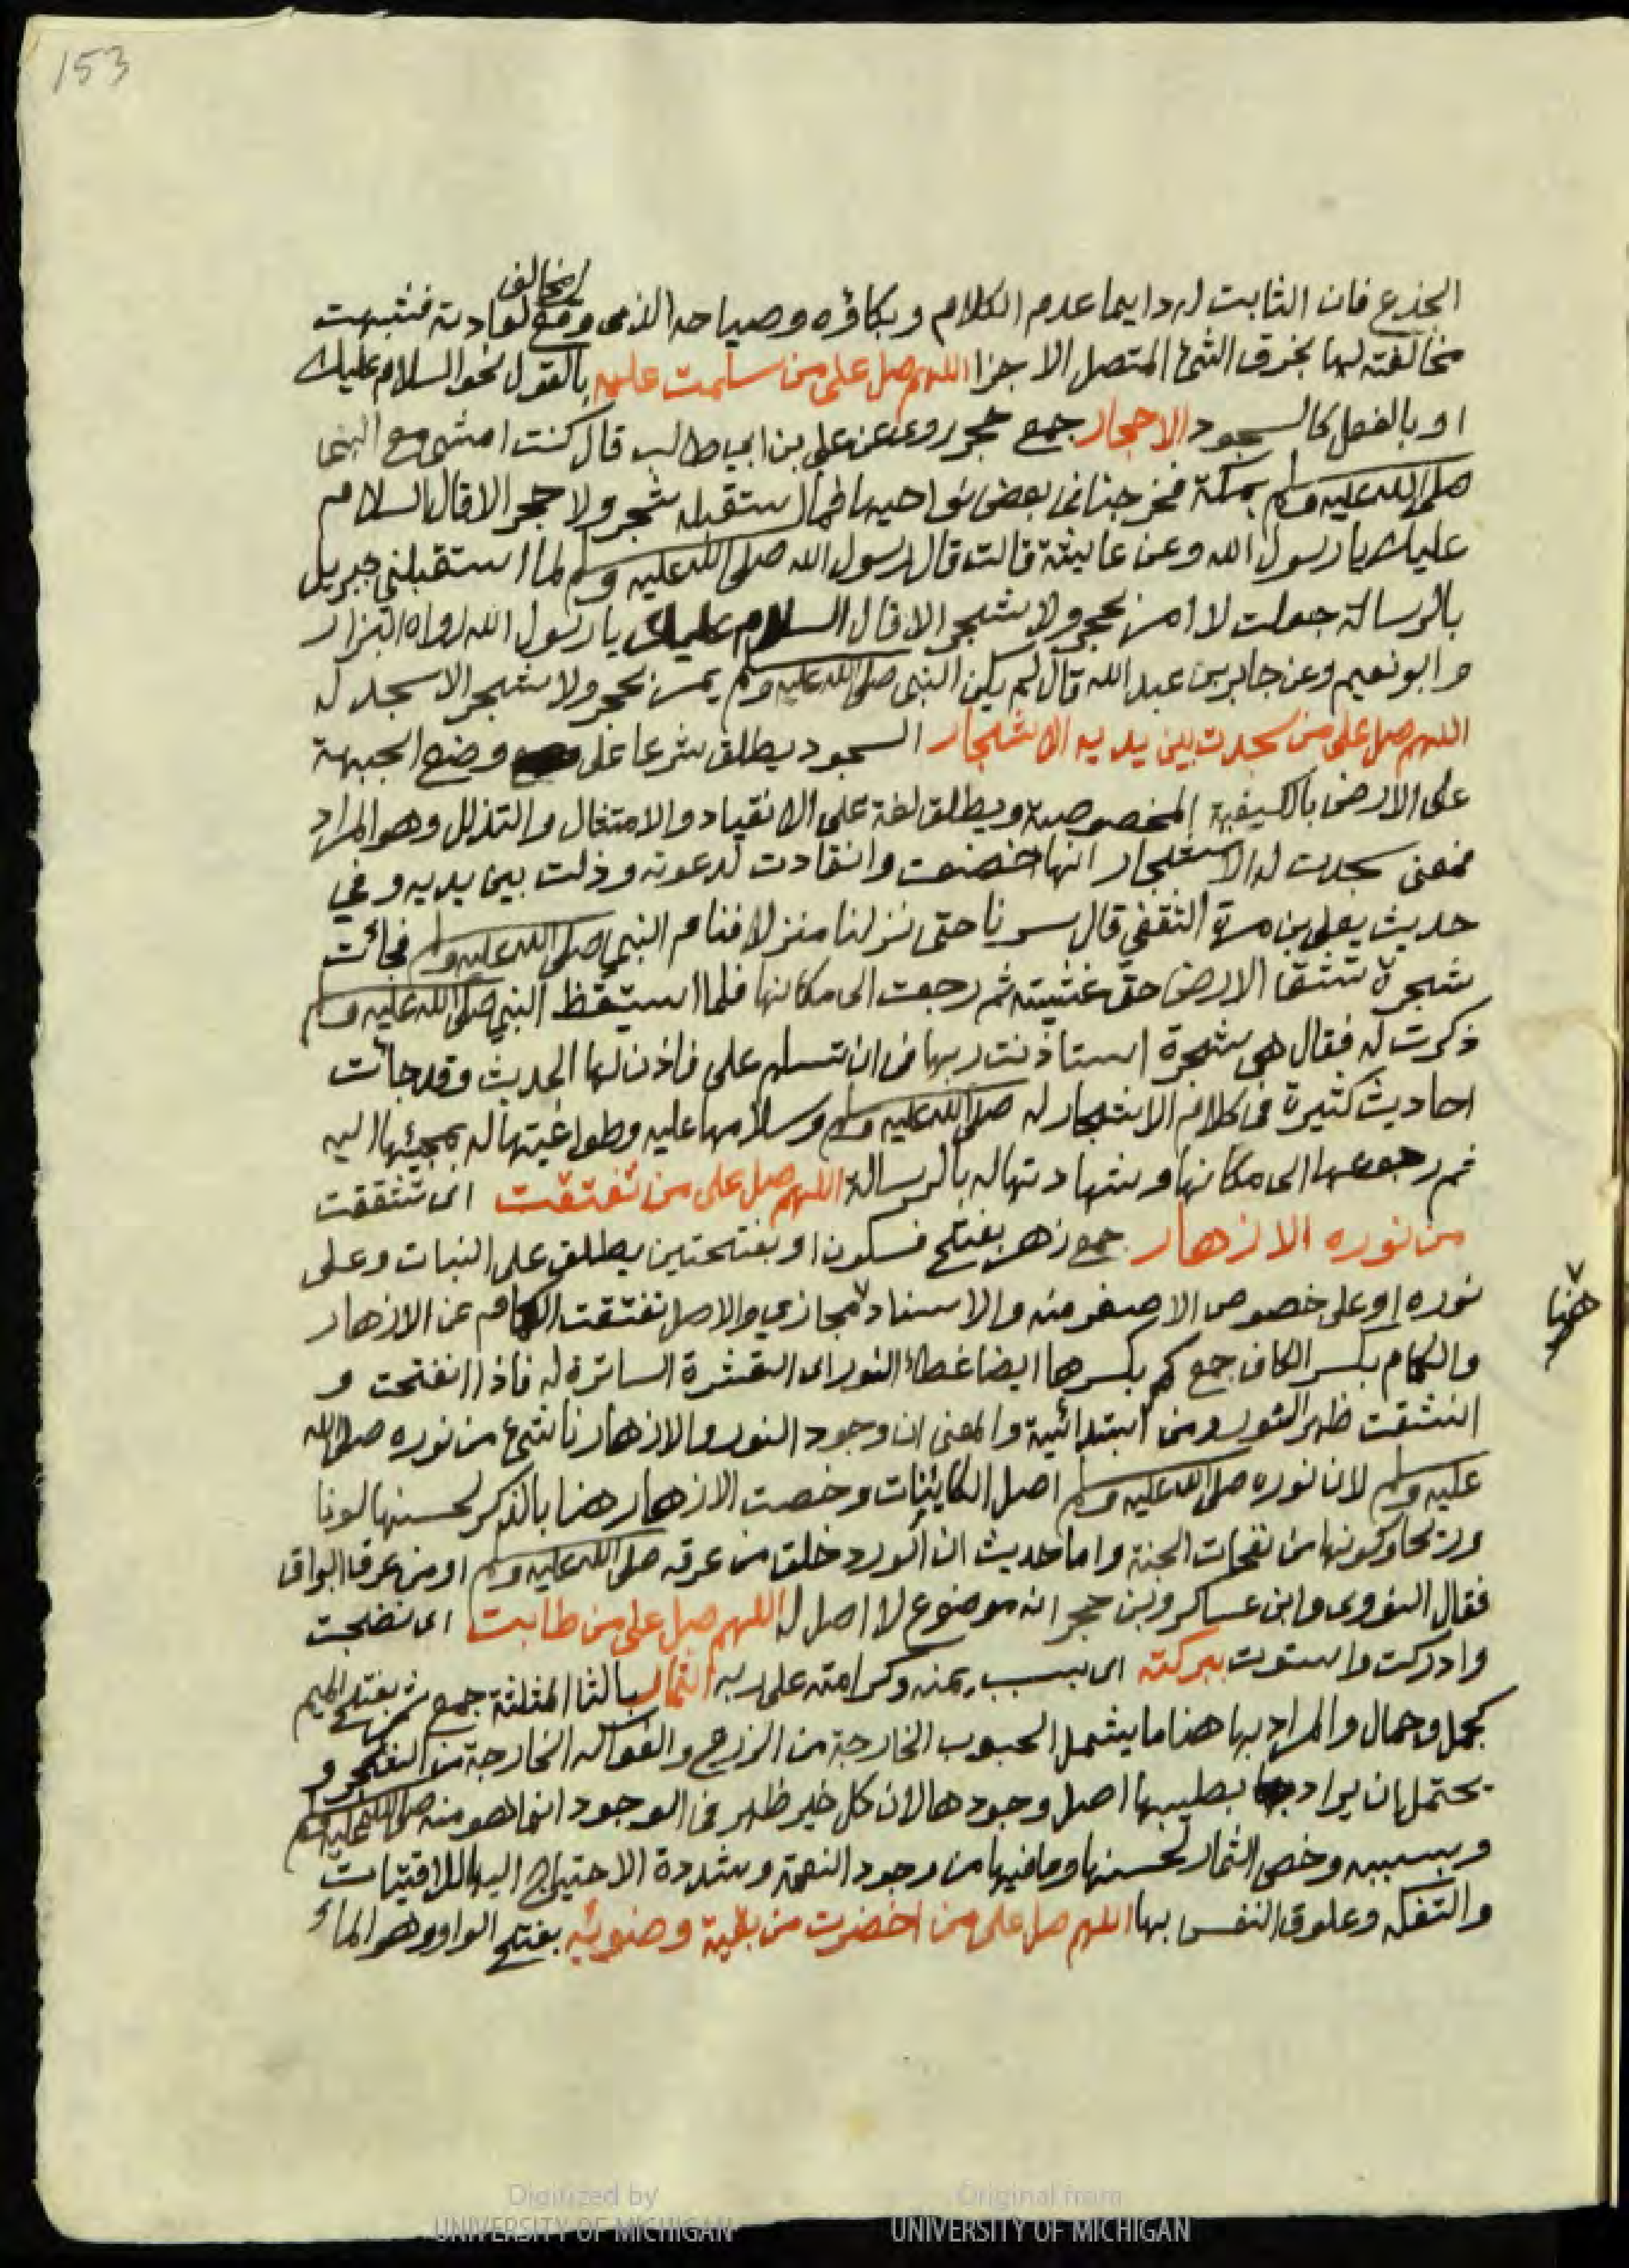 153
الجذع فان الثابت له دايما عدم الكلام وبكاؤه وصياحه الذى وقع مخالف لعادته فشبهت
مخالفته لها بخرق الشئ المتصل الاجزا اللهم صل على من سلمت عليه بالقول نحو السلام عليك
او بالفعل كالسجود الاحجار جمع حجر روى عن على بن ابي طالب قال كنت امشى مع النبى
صلى الله عليه وسلم بمكة فخرجنا فى بعض نواحيها فما استقبله شجر ولا حجر الا قال السلام
عليك يا رسول الله وعن عايشة قالت قال رسول الله صلى الله عليه وسلم لما استقبلني جبريل
بالرسالة جعلت لا امر بحجر ولا شجر الا قال السلام عليك يا رسول الله رواه البزار
وابو نعيم وعن جابر بن عبد الله قال لم يكن النبى صلى الله عليه وسلم يمر بحجر ولا شجر الا سجد له
اللهم صل على من سجدت بين يديه الاشجار السجود يطلق شرعا على وضع الجبهة
على الارض بالكيفية المخصوصة ويطلق لغة على الانقياد والامتثال والتذلل وهو المراد
فمعنى سجدت له الاشجار انها خضعت وانقادت لدعوته وذلت بين يديه وفي
حديث يعلى بن مرة الثقفي قال سرنا حتى نزلنا منزلا فنام النبي صلى الله عليه وسلم فجائت
شجرة تشق الارض حتى غشيته ثم رجعت الى مكانها فلما استيقظ النبي صلى الله عليه وسلم
ذكرت له فقال هى شجرة استاذنت ربها فى ان تسلم على فاذن لها الحديث وقد جائت
احاديث كثيرة فى كلام الاشجار له صلى الله عليه وسلم وسلامها عليه وطواعيتها له بمجيئها اليه
ثم رجوعها الى مكانها وشهادتها له بالرسالة اللهم صل على من تفتقت اى تشققت
من نوره الازهار جمع زهر بفتح فسكون او بفتحتين يطلق على النبات وعلى
نوره او على خصوص الاصفر منه والاسناد مجازي والاصل تفتقت الكمام عن الازهار
هنا
والكمام بكسر الكاف جمع كم بكسرها ايضا غطاء النور اى القشرة الساترة له فاذا انفتحت و
انشقت ظهر النور ومن ابتدائية والمعنى ان وجود النور والازهار ناشئ من نوره صلى الله
عليه وسلم لان نوره صلى الله عليه وسلم اصل الكاينات وخصت الازهار هنا بالذكر لحسنها لونا
وريحا وكونها من نفحات الجنة واما حديث ان الورد خلق من عرقه صلى الله عليه وسلم او من عرق البراق
فقال النووى وابن عساكر وبن حجر انه موضوع لا اصل له اللهم صل على من طابت اى نضجت
وادركت واستوت ببركته اى بسبب يمنه وكرامته على ربه الثمار بالثا المثلثة جمع ثمر بفتح الميم
كجمل وجمال والمراد بها هنا ما يشمل الحبوب الخارجة من الزرع والفواكه الخارجة من الشجر و
يحتمل ان يراد بطيبها اصل وجودها لان كل خير ظهر فى الوجود انما هو منه صلى الله عليه وسلم
وبسببه وخص الثمار لحسنها وما فيها من وجود النعمة وشدة الاحتياج اليها للاقتيات
والتفكه وعلوق النفس بها اللهم صل على من اخضرت من بقية وضوئه بفتح الواو وهو الماء
Digitized by
UNIVERSITY OF MICHIGAN
Original from
UNIVERSITY OF MICHIGAN